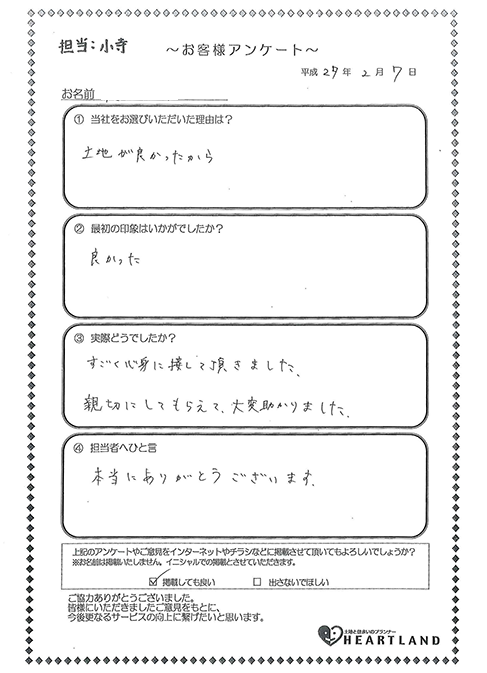 担当：小寺
～お客様アンケート～
平成 27 年 2 月 7 日
お名前
① 当社をお選びいただいた理由は？
土地が良かったから
② 最初の印象はいかがでしたか？
良かった
③ 実際どうでしたか？
すごく心身に接して頂きました、
親切にしてもらえて、大変助かりました、
④ 担当者へひと言
本当にありがとうございます、
上記のアンケートやご意見をインターネットやチラシなどに掲載させて頂いてもよろしいでしょうか？
※お名前は掲載いたしません。イニシャルでの掲載とさせていただきます。
☑ 掲載しても良い □ 出さないでほしい
ご協力ありがとうございました。
皆様にいただきましたご意見をもとに、
今後更なるサービスの向上に繋げたいと思います。
土地と住まいのプランナー
HEARTLAND